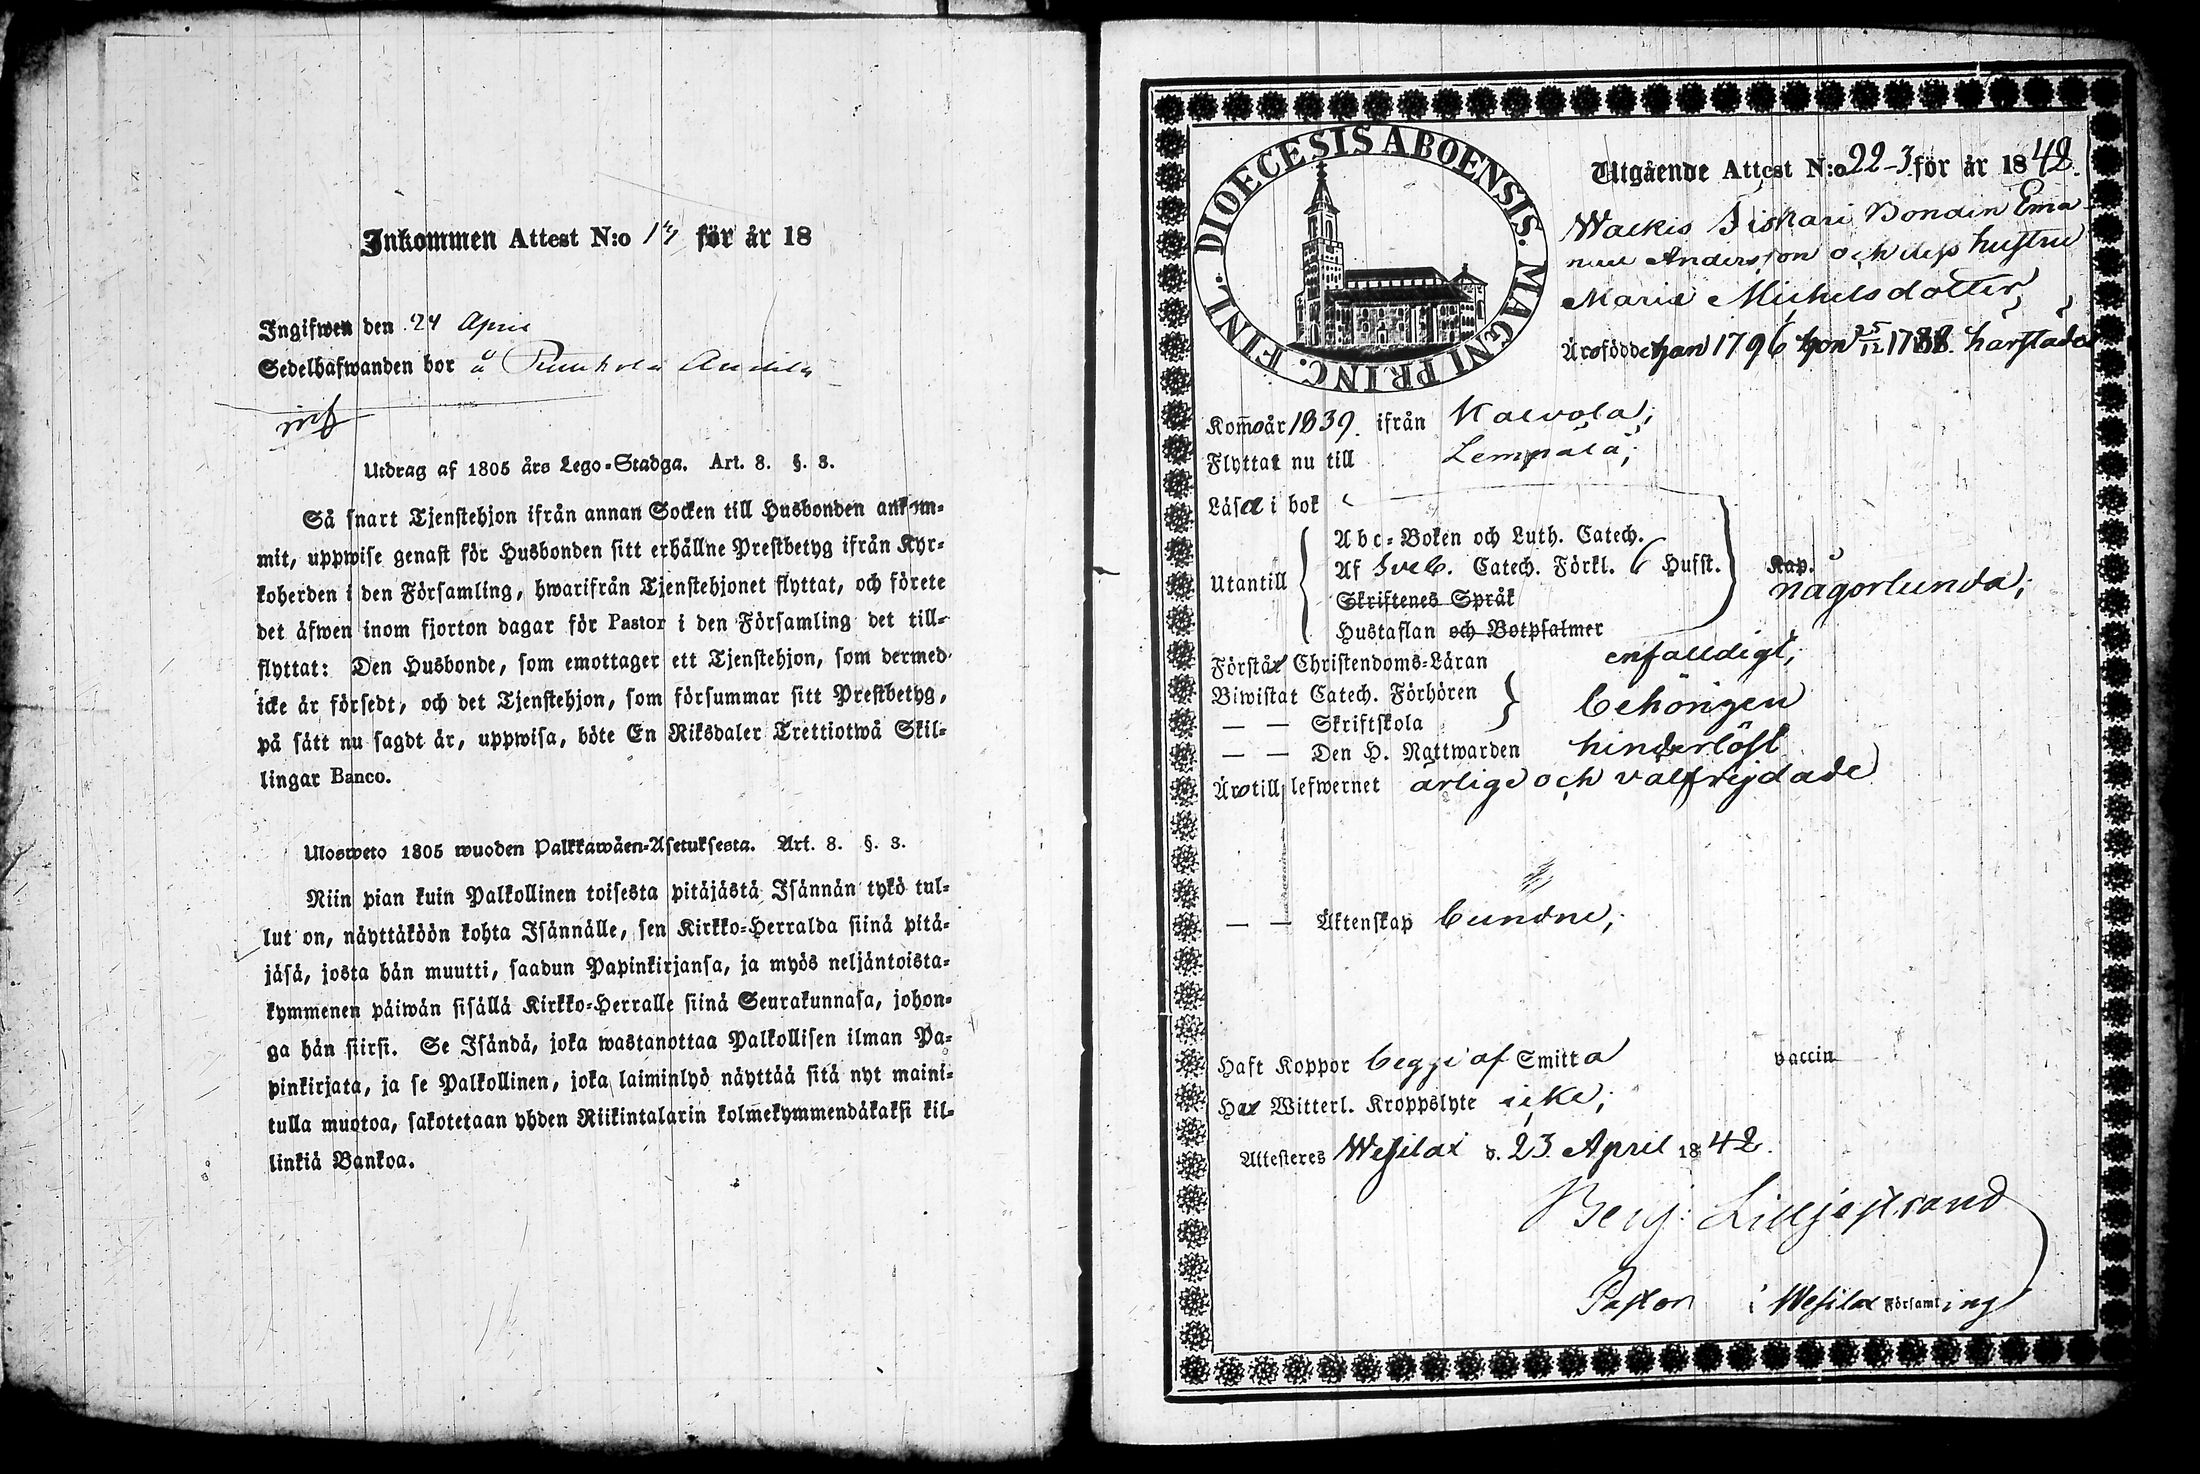 Inkommen Attest N:o 17 för år 18
Ingifwen den 24 April
Sedelhafwanden bor å
Utdrag af 1805 års Lego-Stadga. Art. 8. §. 3.
Så snart Tjenstehjon ifrån annan Socken till Husbonden ankom-
mit, uppwise genast för Husbonden sitt erhållne Prestbetyg ifrån Kyr-
koherden i den Församling, hwarifrån Tjenstehjonet flyttat, och förete
det äfwen inom fjorton dagar för Pastor i den Församling det till-
flyttat: Den Husbonde, som emottager ett Tjenstehjon, som dermed
icke är försedt, och det Tjenstehjon, som försummar sitt Prestbetyg,
på sätt nu sagdt är, uppwisa, böte En Riksdaler Trettiotwå Skil-
lingar Banco.
Ulosweto 1805 wuoden Palkkawäen-Asetuksesta. Art. 8. §. 3.
Niin pian kuin Palkollinen toisesta pitäjästä Isännän tykö tul-
lut on, näyttäköön kohta Isännälle, sen Kirkko-Herralda siinä pitä-
jäsä, josta hän muutti, saadun Papinkirjansa, ja myös neljäntoista-
kymmenen päiwän sisällä Kirkko-Herralle siinä Seurakunnasa, johon-
ga hän siirsi. Se Isändä, joka wastanottaa Palkollisen ilman Pa-
pinkirjata, ja se Palkollinen, joka laiminlyö näyttää sitä nyt maini-
tulla muotoa, sakotetaan yhden Riikintalarin kolmekymmendäkaksi kil-
linkiä Bankoa.
DIOECESIS ABOENSIS. MAGNI PRINC. FINL.
Utgående Attest N:o 22-3 för år 1842.
Wackis Tiskari Bonden Ema-
nuel Andersson och dess hustru
Maria Michelsdotter,
Äro födde han 1796 hon 25/12 1788. härstädes
Kommo år 1839. ifrån Kalvola;
Flyttat nu till Lempälä;
Läsa i bok
Abc-Boken och Luth. Catech.
Utantill Af Sveb. Catech. Förkl. 6 Hufst. Kap. någorlunda;
Skriftenes Språk
Hustaflan och Botpsalmer
Förstår Christendoms-Läran enfalldigt;
Biwistat Catech. Förhören behörigen
— — Skriftskola
— — Den H. Nattwarden hinderlöst
Äro till lefwernet ärlige och välfrejdade
— — Äktenskap bundne;
Haft Koppor begge af Smitta vaccin
Har Witterl. Kroppslyte icke;
Attesteres Wesilax d. 23 April 1842.
Benj. Liljestrand
Pastor i Wesilax Församling